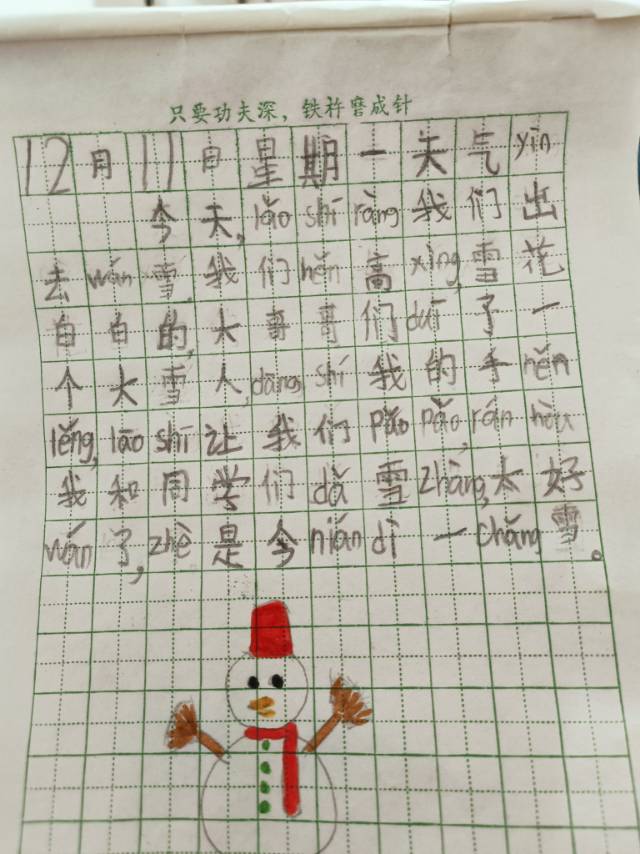 只要功夫深，铁杵磨成针
12月11日星期一天气yīn
今天，lǎo shī ràng我们出
去wán雪，我们hěn高xìng，雪花
白白的，大哥哥们duī了一
个大雪人，dāng shí我的手hěn
lěng，lǎo shī让我们pǎo pǎo，rán hòu
我和同学们dǎ雪zhàng，太好
wán了，zhè是今nián dì一chǎng雪。